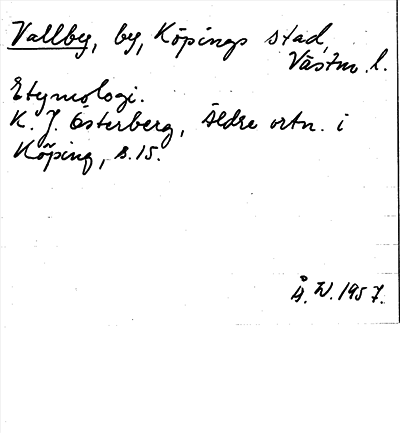 Vallby, by, Köpings stad,
Västm. l.
Etymologi.
K. J. Österberg, Äldre ortn. i
Köping, s. 15.
Å. W. 1957.